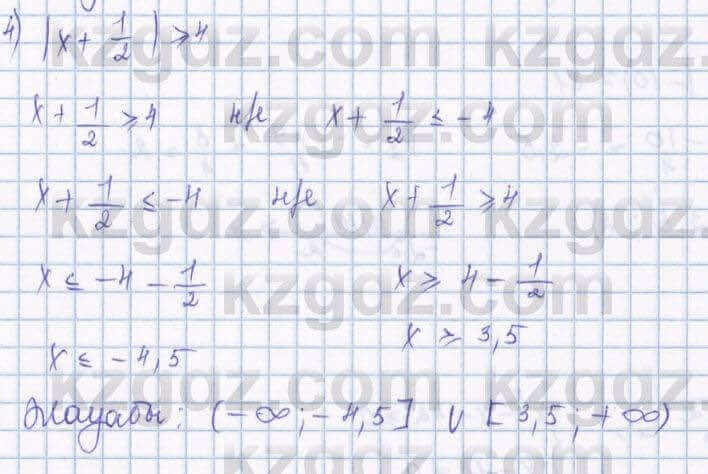 4) |x + 1/2| ⩾ 4
x + 1/2 ⩾ 4 н/е x + 1/2 ≤ -4
x + 1/2 ≤ -4 н/е x + 1/2 ⩾ 4
x ≤ -4 - 1/2 x ⩾ 4 - 1/2
x ≤ -4,5 x ⩾ 3,5
Жауабы: (-∞; -4,5] ∪ [3,5; +∞)
kzgdz.com
kzgdz.com
kzgdz.com
kzgdz.com
kzgdz.com